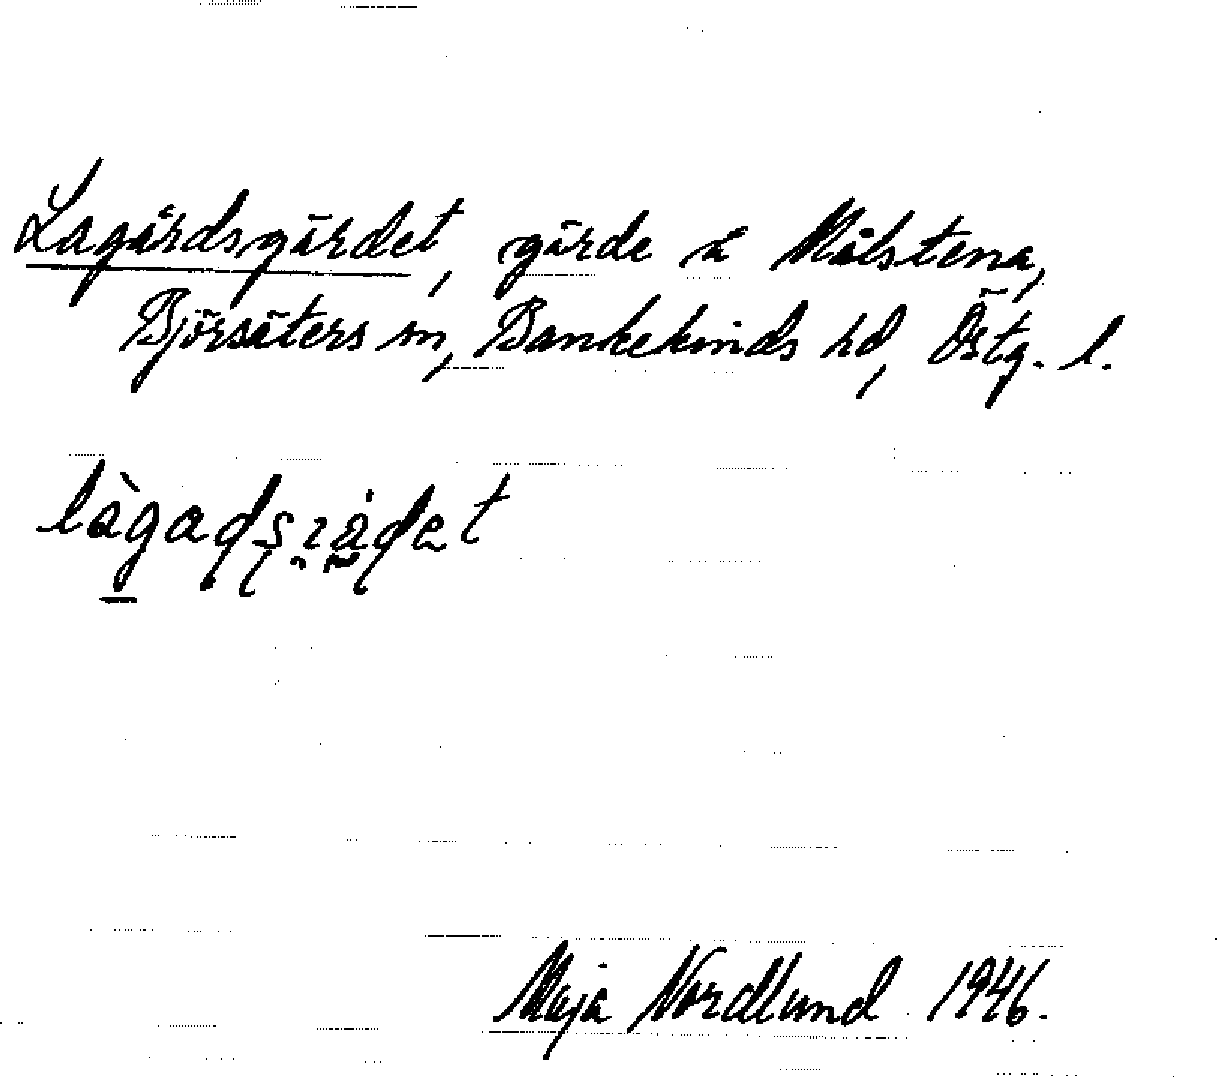 Lagårdsgärdet, gärde å Målstena,
Björsäters sn, Bankekinds hd, Östg. l.
làgadsrådet
Maja Nordlund 1946.